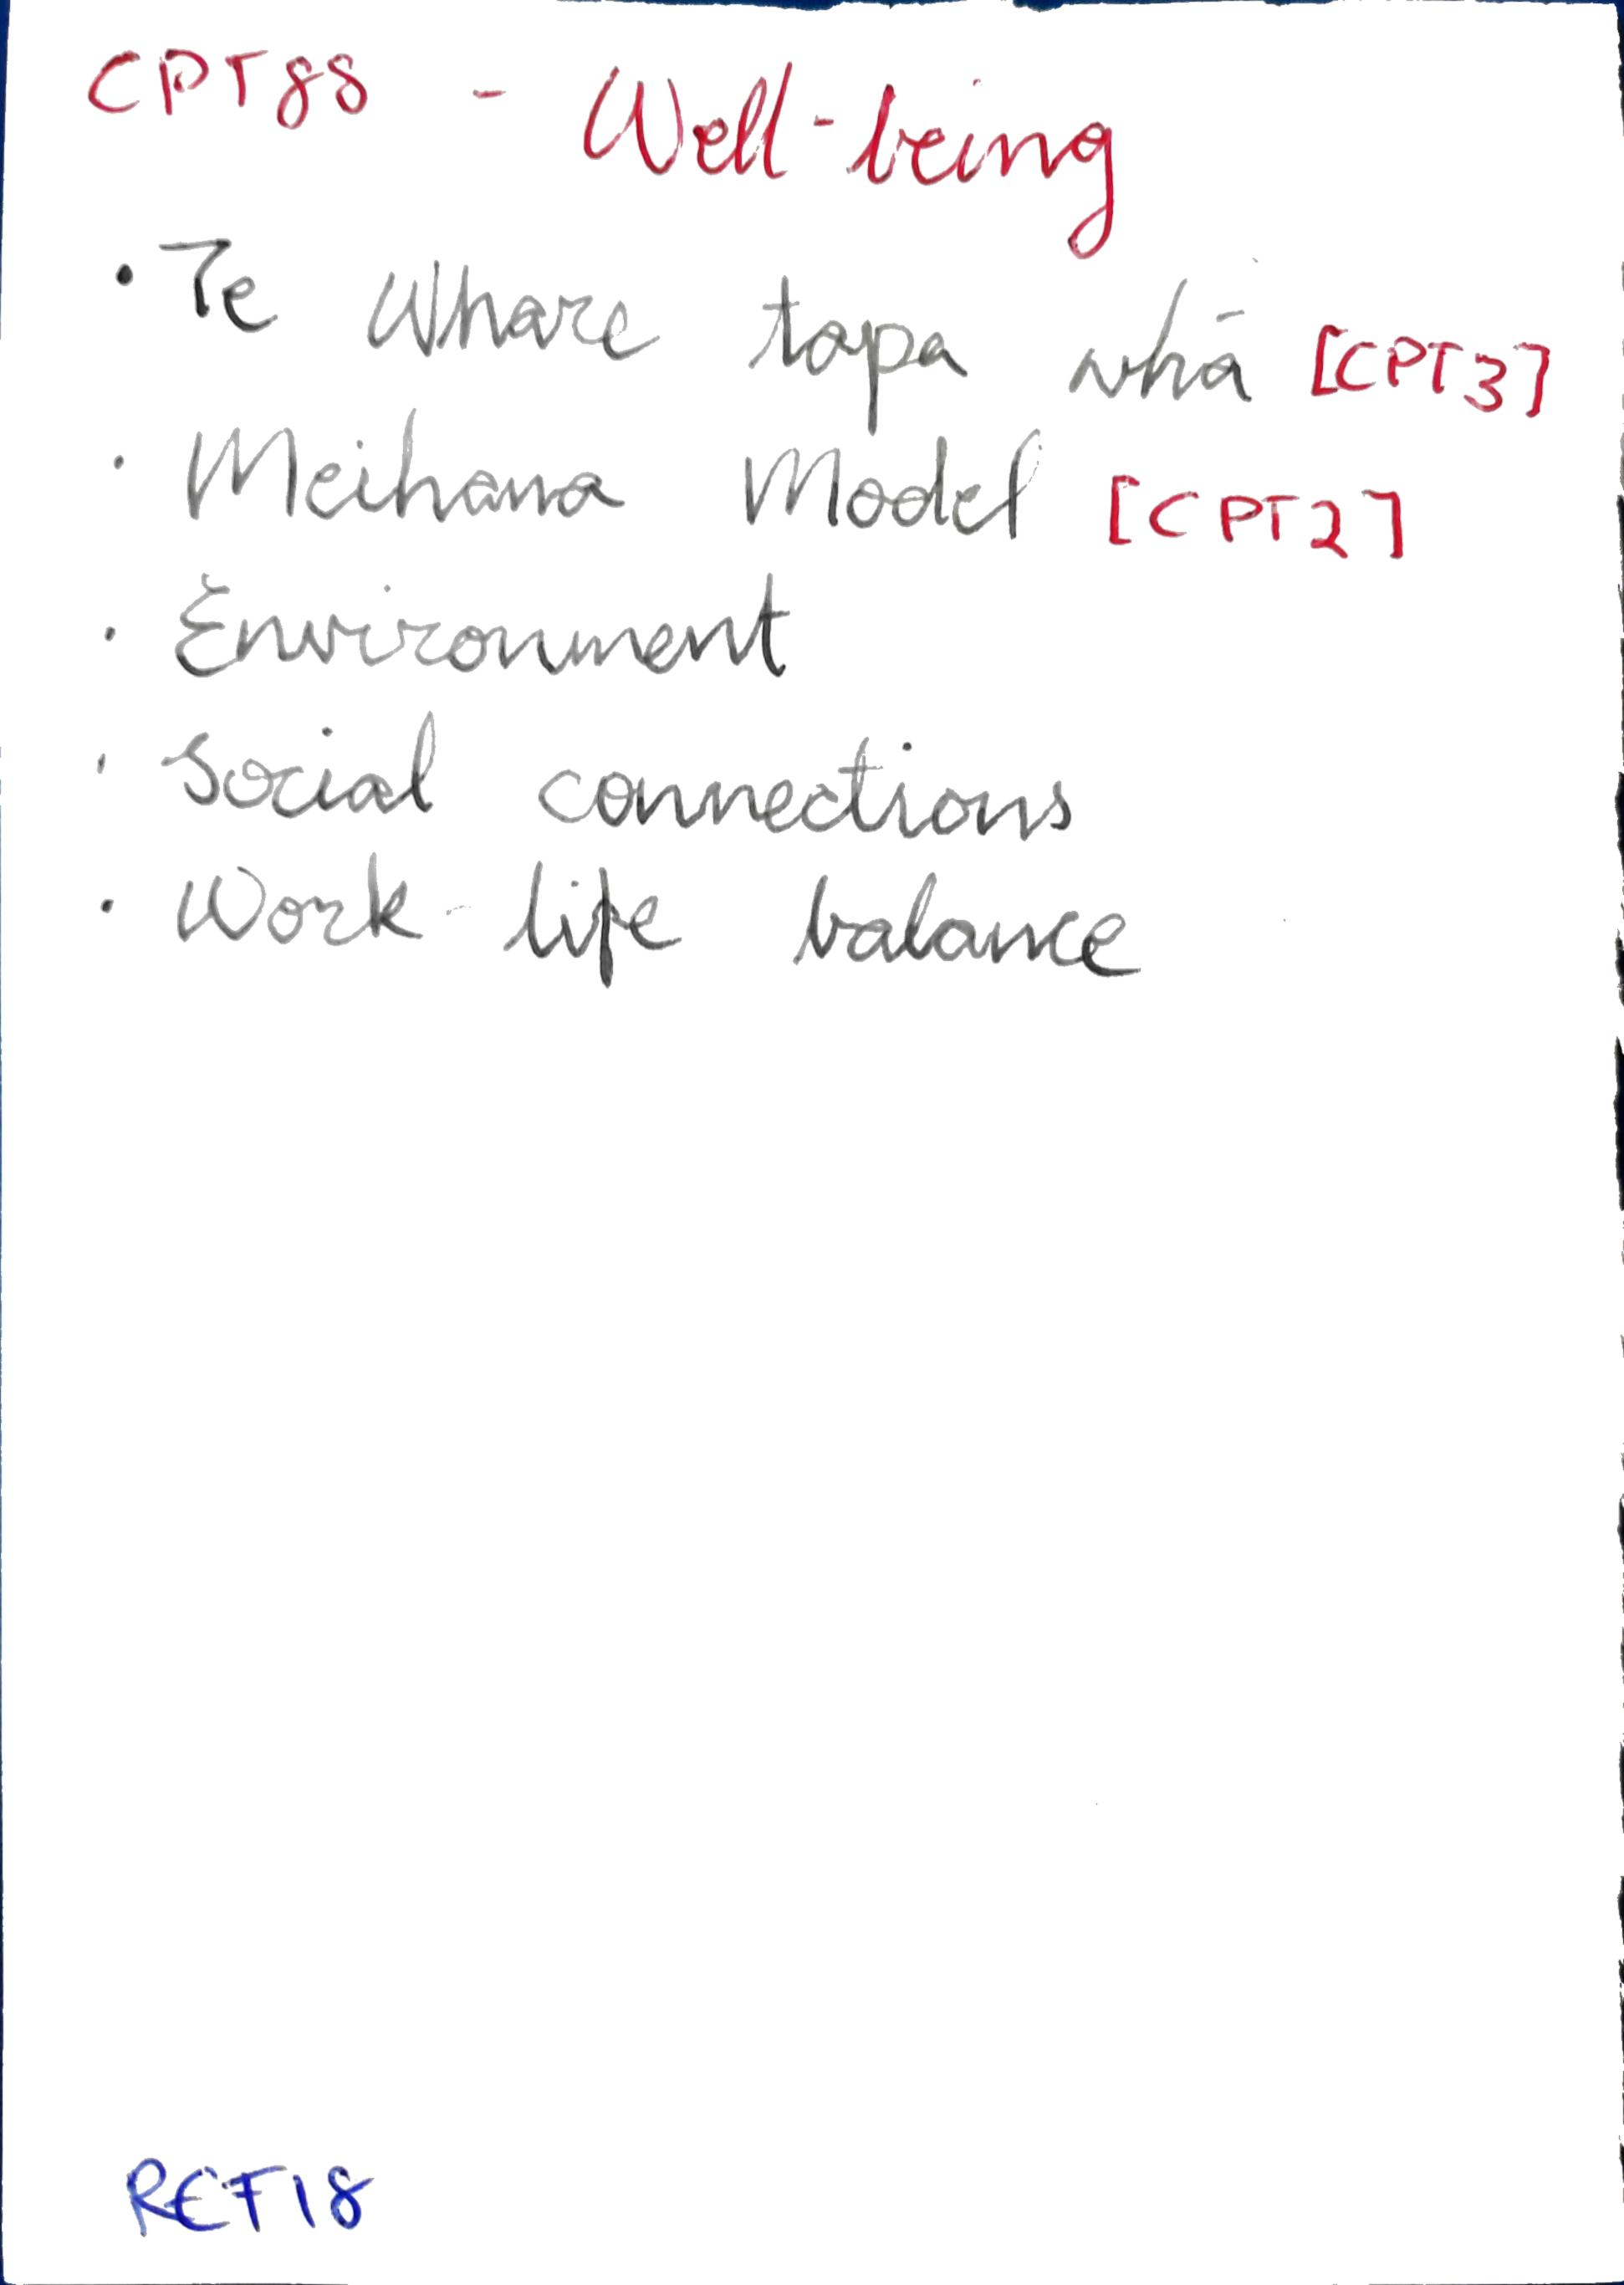 CPT88 - Well-being
• Te Whare tapa whā [CPT3]
• Meihana Model [CPT2]
• Environment
• Social connections
• Work-life balance
REF18